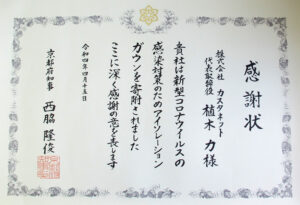 感謝状
株式会社 カスタネット
代表取締役 植木 力 様
貴社は新型コロナウイルスの
感染対策のためのアイソレーション
ガウンを寄附されました
ここに深く感謝の意を表します
令和四年四月十五日
京都府知事 西脇 隆俊